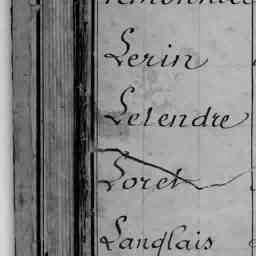 Lerin
Letendre
Loret
Langlais